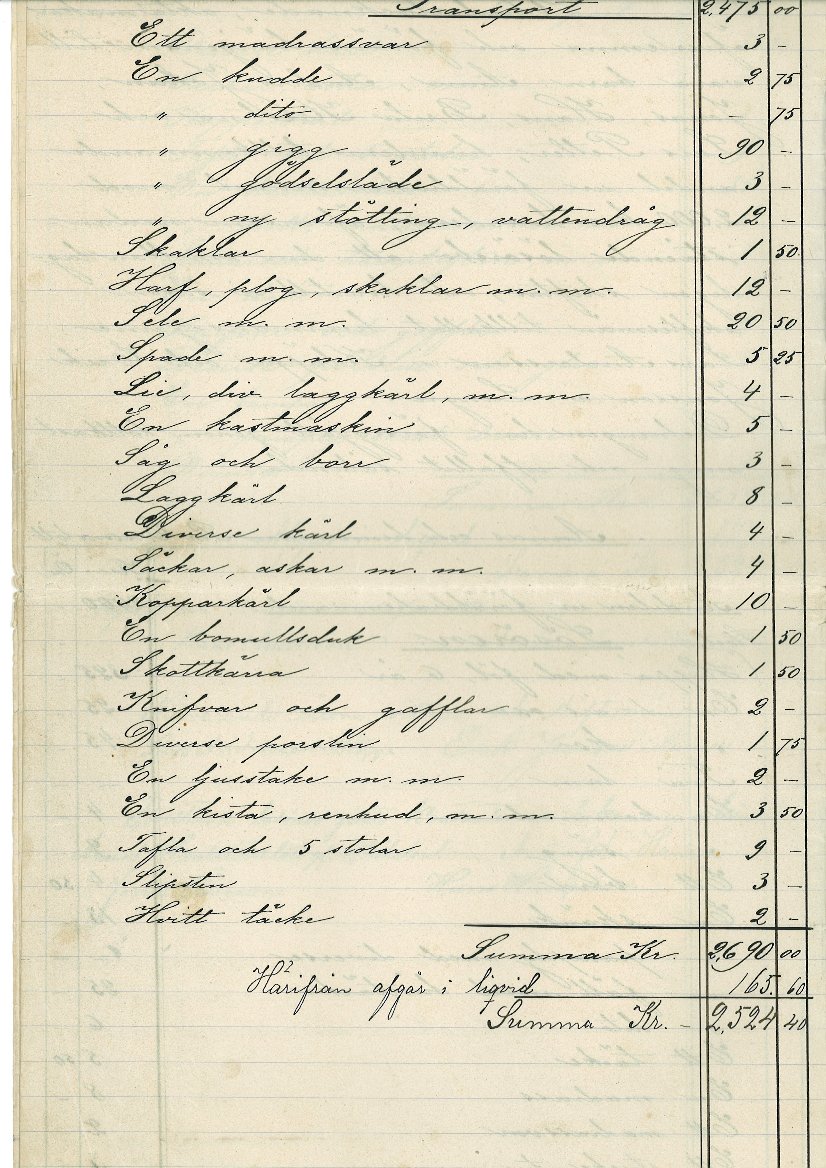 Transport 2,475 00
Ett madrassvar 3 -
En kudde 2 75
" dito - 75
" gigg 90 -
" gödselsläde 3 -
" ny stötting, vattendråg 12 -
Skaklar 1 50
Harf, plog, skaklar m. m. 12 -
Sele m. m. 20 50
Spade m. m. 5 25
Lie, div. laggkärl, m. m. 4 -
En kastmaskin 5 -
Såg och borr 3 -
Laggkärl 8 -
Diverse kärl 4 -
Säckar, askar m. m. 4 -
Kopparkärl 10 -
En bomullsduk 1 50
Skottkärra 1 50
Knifvar och gafflar 2 -
Diverse porslin 1 75
En ljusstake m. m. 2 -
En kista, renhud, m. m. 3 50
Tafla och 5 stolar 9 -
Slipsten 3 -
Hvitt täcke 2 -
Summa Kr. 2,690 00
Härifrån afgår i liqvid 165. 60
Summa Kr. - 2,524 40